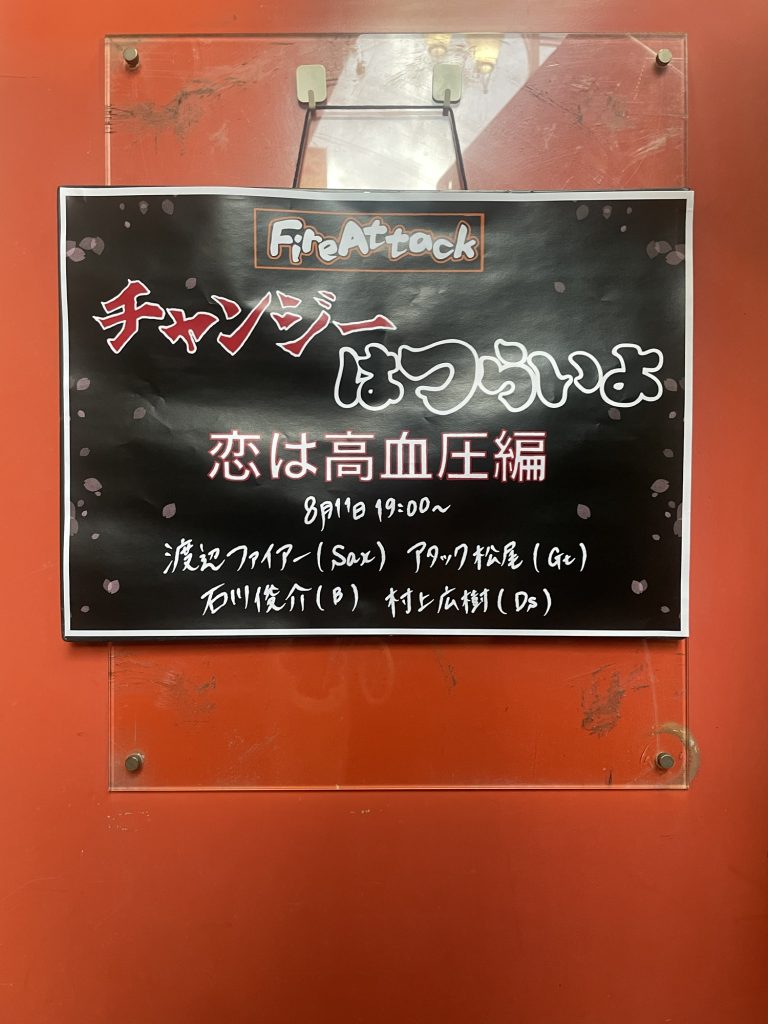 FireAttack
チャンジー
はつらいよ
恋は高血圧編
8月11日 19:00〜
渡辺ファイアー(Sax) アタック松尾(Gt)
石川俊介(B) 村上広樹(Ds)